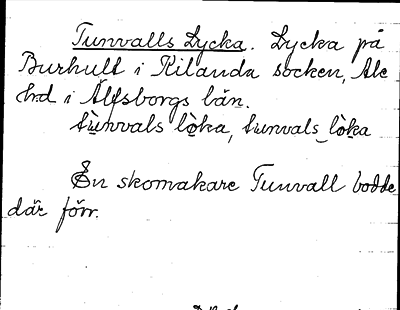 Tunvalls Lycka. Lycka på
Burhult i Kilanda socken, Ale
hd i Älfsborgs län.
tùnvals lòka, tunvals lòka
En skomakare Tunvall bodde
där förr.